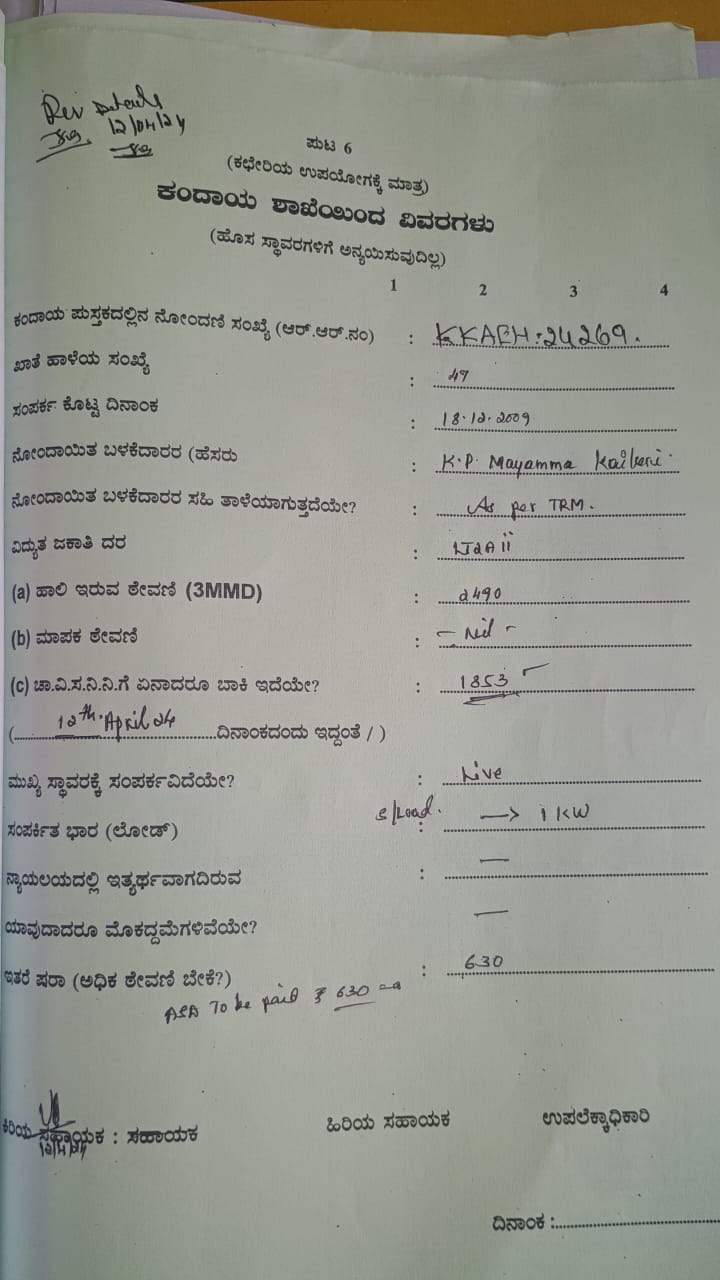 Rev Details
12/04/24
ಪುಟ 6
(ಕಛೇರಿಯ ಉಪಯೋಗಕ್ಕೆ ಮಾತ್ರ)
ಕಂದಾಯ ಶಾಖೆಯಿಂದ ವಿವರಗಳು
(ಹೊಸ ಸ್ಥಾವರಗಳಿಗೆ ಅನ್ವಯಿಸುವುದಿಲ್ಲ)
1 2 3 4
ಕಂದಾಯ ಪುಸ್ತಕದಲ್ಲಿನ ನೋಂದಣಿ ಸಂಖ್ಯೆ (ಆರ್.ಆರ್.ನಂ) : KKAEH:24269.
ಖಾತೆ ಹಾಳೆಯ ಸಂಖ್ಯೆ : 49
ಸಂಪರ್ಕ ಕೊಟ್ಟ ದಿನಾಂಕ : 18.12.2009
ನೋಂದಾಯಿತ ಬಳಕೆದಾರರ (ಹೆಸರು : K.P. Mayamma
ನೋಂದಾಯಿತ ಬಳಕೆದಾರರ ಸಹಿ ತಾಳೆಯಾಗುತ್ತದೆಯೇ? : As per TRM.
ವಿದ್ಯುತ ಜಕಾತಿ ದರ : LT2Aii
(a) ಹಾಲಿ ಇರುವ ಠೇವಣಿ (3MMD) : 2490
(b) ಮಾಪಕ ಠೇವಣಿ : - Nil -
(c) ಚಾ.ವಿ.ಸ.ನಿ.ನಿ.ಗೆ ಏನಾದರೂ ಬಾಕಿ ಇದೆಯೇ? : 1853
(12th April 24 ದಿನಾಂಕದಂದು ಇದ್ದಂತೆ / )
ಮುಖ್ಯ ಸ್ಥಾವರಕ್ಕೆ ಸಂಪರ್ಕವಿದೆಯೇ? : Live
ಸಂಪರ್ಕಿತ ಭಾರ (ಲೋಡ್) S/Load. : → 1 KW
ನ್ಯಾಯಲಯದಲ್ಲಿ ಇತ್ಯರ್ಥವಾಗದಿರುವ : —
ಯಾವುದಾದರೂ ಮೊಕದ್ದಮೆಗಳಿವೆಯೇ? —
ಇತರೆ ಷರಾ (ಅಧಿಕ ಠೇವಣಿ ಬೇಕೆ?) : 630
ASD To be paid ₹ 630
ಕಿರಿಯ ಸಹಾಯಕ : ಸಹಾಯಕ ಹಿರಿಯ ಸಹಾಯಕ ಉಪಲೆಕ್ಕಾಧಿಕಾರಿ
ದಿನಾಂಕ :